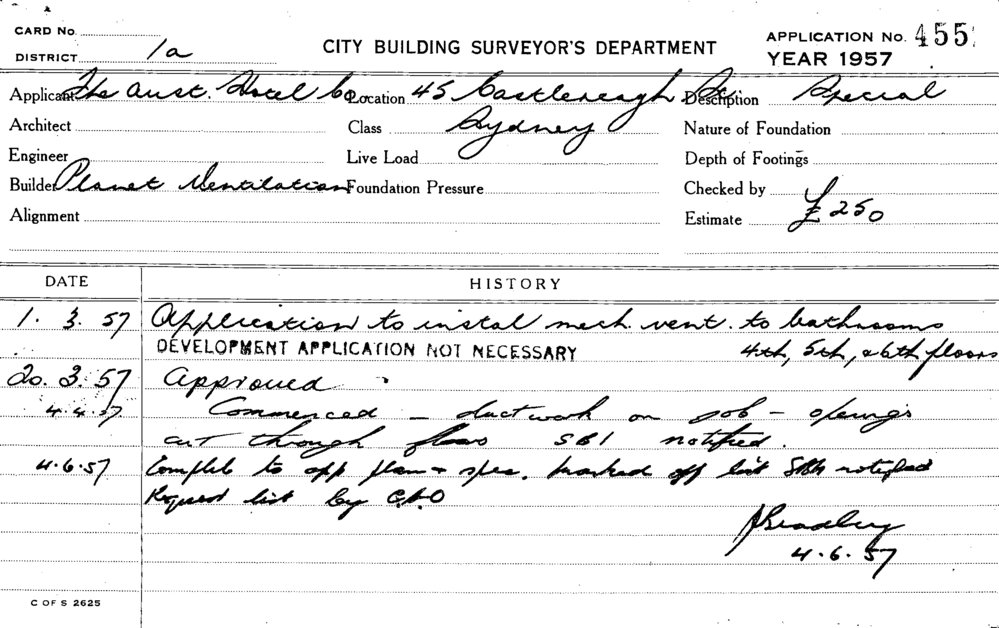 CARD No.
DISTRICT 1a
CITY BUILDING SURVEYOR'S DEPARTMENT
APPLICATION No. 455
YEAR 1957
Applicant The Aust. Hotel Co Location 45 Castlereagh St Description Special
Architect Class Sydney Nature of Foundation
Engineer Live Load Depth of Footings
Builder Planet Ventilation Foundation Pressure Checked by
Alignment Estimate £250
DATE HISTORY
1. 3. 57 Application to instal mech. vent. to bathrooms
DEVELOPMENT APPLICATION NOT NECESSARY 4th, 5th, & 6th floors
20. 3. 57 Approved
4.4.57 Commenced - ductwork on job - openings
cut through floors SBI notified.
4.6.57 Complete to app plan & spec. marked off list notified
Request list by
Bradley
4.6.57
C OF S 2625